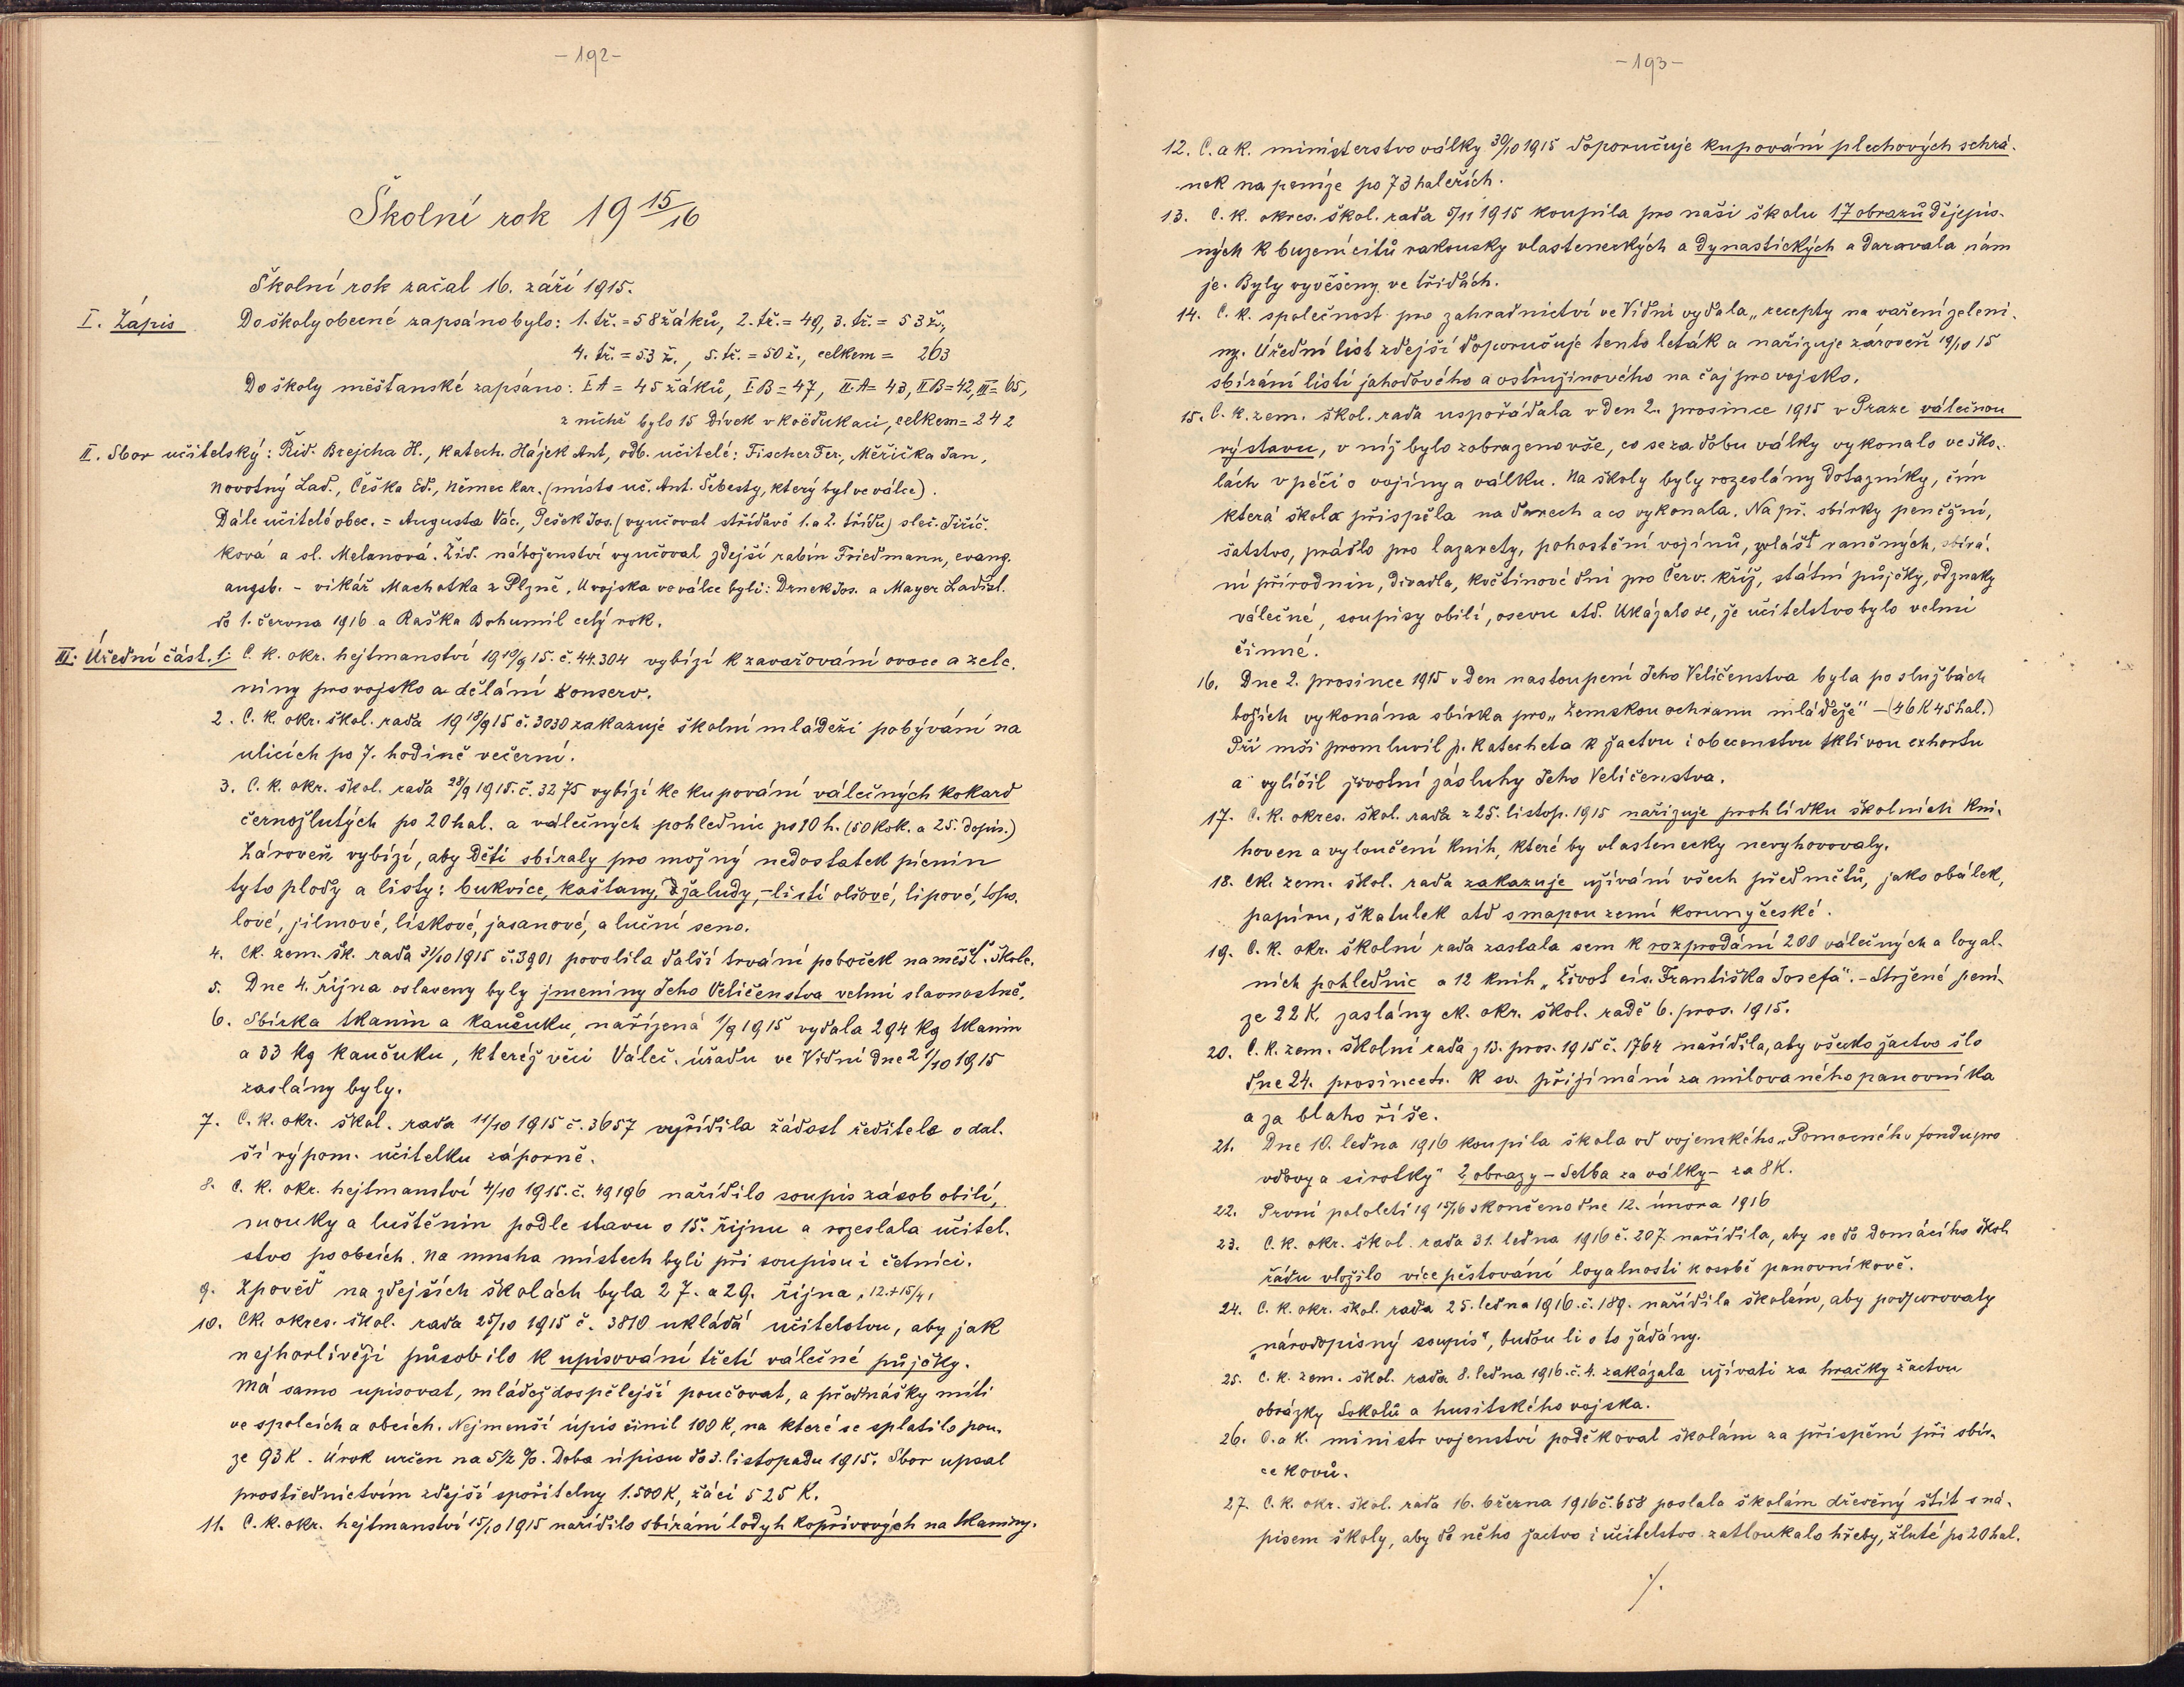 -192-
Školní rok 19 15/16
Školní rok začal 16. září 1915.
I. Zápis Do školy obecné zapsáno bylo: 1. tř. = 58 žáků, 2. tř. = 49, 3. tř. = 53 ž.,
4. tř. = 53 ž., 5. tř. = 50 ž., celkem = 263
Do školy měšťanské zapsáno: I A = 45 žáků, I B = 47, II A = 43, II B = 42, III = 65,
z nichž bylo 15 dívek v koëdukaci, celkem = 242
II. Sbor učitelský: Říd. Brejcha H., katech. Hájek Ant, odb. učitelé: Fischer Fer., Měřička Jan,
Novotný Lad., Češka Ed., Němec Kar. (místo uč. Ant. Šebesty, který byl ve válce).
Dále učitelé obec. = Augusta Vác., Pešek Jos. (vyučoval střídavě 1. a 2. třídu) sleč. Jiříč-
ková a sl. Melanová. Žid. náboženství vyučoval zdejší rabín Friedmann, evang.
augsb. - vikář Machotka z Plzně. U vojska ve válce byli: Drnek Jos. a Mayer Ladisl.
do 1. června 1916 a Raška Bohumil celý rok.
III. Úřední část. 1. C. k. okr. hejtmanství 19 10/9 15. č. 44.304 vybízí k zavařování ovoce a zele-
niny pro vojsko a dělání konserv.
2. C. k. okr. škol. rada 19 18/9 15 č. 3030 zakazuje školní mládeži pobývání na
ulicích po 7. hodině večerní.
3. C. k. okr. škol. rada 28/9 1915. č. 3275 vybízí ke kupování válečných kokard
černožlutých po 20 hal. a válečných pohlednic po 10 h. (50 kok. a 25. dopis.)
Zároveň vybízí, aby děti sbíraly pro možný nedostatek pícnin
tyto plody a listy: bukvice, kaštany, žaludy, - listí olšové, lipové, topo-
lové, jilmové, lískové, jasanové, a luční seno.
4. Ck. zem. šk. rada 31/10 1915 č. 3901 povolila další trvání poboček na měšť. škole.
5. Dne 4. října oslaveny byly jmeniny Jeho Veličenstva velmi slavnostně.
6. Sbírka tkanin a kaučuku, nařízená 1/9 1915 vydala 294 kg tkanin
a 33 kg kaučuku, kteréž věci Váleč. úřadu ve Vídni dne 21/10 1915
zaslány byly.
7. C. k. okr. škol. rada 11/10 1915 č. 3657 vyřídila žádost ředitele o dal-
ší výpom. učitelku záporně.
8. C. k. okr. hejtmanství 4/10 1915. č. 49196 nařídilo soupis zásob obilí,
mouky a luštěnin podle stavu o 15. říjnu a rozeslala učitel-
stvo po obcích. Na mnoha místech byli při soupisu i četníci.
9. Zpověď na zdejších školách byla 27. a 29. října, 12. + 15/4,
10. Ck. okres. škol. rada 25/10 1915 č. 3810 ukládá učitelstvu, aby jak
nejhorlivěji působilo k upisování třetí válečné půjčky.
Má samo upisovat, mládež dospělejší poučovat, a přednášky míti
ve spolcích a obcích. Nejmenší úpis činil 100 K, na které se splatilo pou-
ze 93 K. Úrok určen na 5 1/2 %. Doba úpisu do 3. listopadu 1915. Sbor upsal
prostřednictvím zdejší spořitelny 1.500 K, žáci 525 K.
11. C. k. okr. hejtmanství 15/10 1915 nařídilo sbírání lodyh kopřivových na tkaniny.
-193-
12. C. a k. ministerstvo války 30/10 1915 doporučuje kupování plechových schrá-
nek na peníze po 73 haléřích.
13. C. k. okres. škol. rada 5/11 1915 koupila pro naši školu 17 obrazů dějepis-
ných k buzení citů rakousky vlasteneckých a dynastických a darovala nám
je. Byly vyvěšeny ve třídách.
14. C. k. společnost pro zahradnictví ve Vídni vydala „recepty na vaření zeleni-
ny. Úřední list zdejší doporučuje tento leták a nařizuje zároveň 19/10 15
sbírání listí jahodového a ostružinového na čaj pro vojsko.
15. C. k. zem. škol. rada uspořádala v den 2. prosince 1915 v Praze válečnou
výstavu, v níž bylo zobrazeno vše, co se za dobu války vykonalo ve ško-
lách v péči o vojíny a válku. Na školy byly rozeslány dotazníky, čím
která škola přispěla na darech a co vykonala. Na př. sbírky peněžní,
šatstvo, prádlo pro lazarety, pohostění vojínů, zvlášť raněných, sbírá-
ní přírodnin, divadla, květinové dni pro Červ. kříž, státní půjčky, odznaky
válečné, soupisy obilí, osevu atd. Ukázalo se, že učitelstvo bylo velmi
činné.
16. Dne 2. prosince 1915 v den nastoupení Jeho Veličenstva byla po službách
božích vykonána sbírka pro „Zemskou ochranu mládeže" - (46 K 45 hal.)
Při mši promluvil p. katecheta k žactvu i obecenstvu tklivou exhortu
a vylíčil životní zásluhy Jeho Veličenstva.
17. C. k. okres. škol. rada z 25. listop. 1915 nařizuje prohlídku školních kni-
hoven a vyloučení knih, které by vlastenecky nevyhovovaly.
18. Ck. zem. škol. rada zakazuje užívání všech předmětů, jako obálek,
papíru, škatulek atd s mapou zemí koruny české.
19. C. k. okr. školní rada zaslala sem k rozprodání 200 válečných a loyal-
ních pohlednic a 12 knih „Život cís. Františka Josefa". - Stržené pení-
ze 22 K, zaslány ck. okr. škol. radě 6. pros. 1915.
20. C. k. zem. školní rada z 13. pros. 1915 č. 1764 nařídila, aby všecko žactvo šlo
dne 24. prosince t.r. k sv. přijímání za milovaného panovníka
a za blaho říše.
21. Dne 10. ledna 1916 koupila škola od vojenského „Pomocného fondu pro
vdovy a sirotky" 2 obrazy - Setba za války - za 8 K.
22. První pololetí 19 15/16 skončeno dne 12. února 1916
23. C. k. okr. škol. rada 31. ledna 1916 č. 207 nařídila, aby se do domácího škol.
řádu vložilo více pěstování loyalnosti k osobě panovníkově.
24. C. k. okr. škol. rada 25. ledna 1916. č. 189. nařídila školám, aby podporovaly
„národopisný soupis", budou li o to žádány.
25. C. k. zem. škol. rada 8. ledna 1916. č. 4. zakázala užívati za hračky žactvu
obrázky Sokolů a husitského vojska.
26. C. a k. ministr vojenství poděkoval školám za přispění při sbír-
ce kovů.
27. C. k. okr. škol. rada 16. března 1916 č. 658 poslala školám dřevěný štít s ná-
pisem školy, aby do něho žactvo i učitelstvo zatloukalo hřeby, žluté po 20 hal.
./.